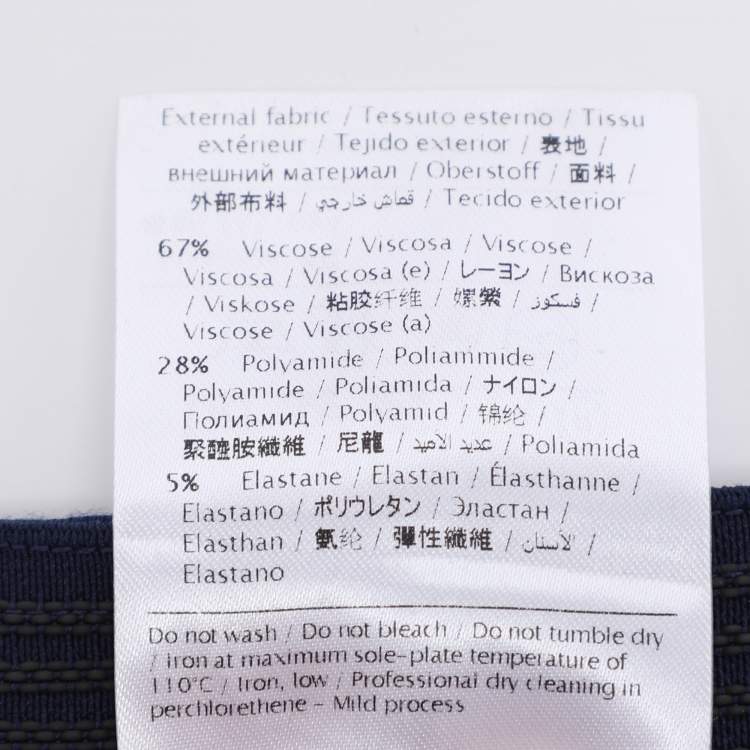 External fabric / Tessuto esterno / Tissu
extérieur / Tejido exterior / 表地 /
внешний материал / Oberstoff / 面料 /
外部布料 / قماش خارجي / Tecido exterior
67% Viscose / Viscosa / Viscose /
Viscosa / Viscosa (e) / レーヨン / Вискоза
/ Viskose / 粘胶纤维 / 嫘縈 / فسكوز /
Viscose / Viscose (a)
28% Polyamide / Poliammide /
Polyamide / Poliamida / ナイロン /
Полиамид / Polyamid / 锦纶 /
聚醯胺纖維 / 尼龍 / عديد الأميد / Poliamida
5% Elastane / Elastan / Élasthanne /
Elastano / ポリウレタン / Эластан /
Elasthan / 氨纶 / 彈性纖維 / الأستان /
Elastano
Do not wash / Do not bleach / Do not tumble dry
/ iron at maximum sole-plate temperature of
110°C / Iron, low / Professional dry cleaning in
perchlorethene - Mild process